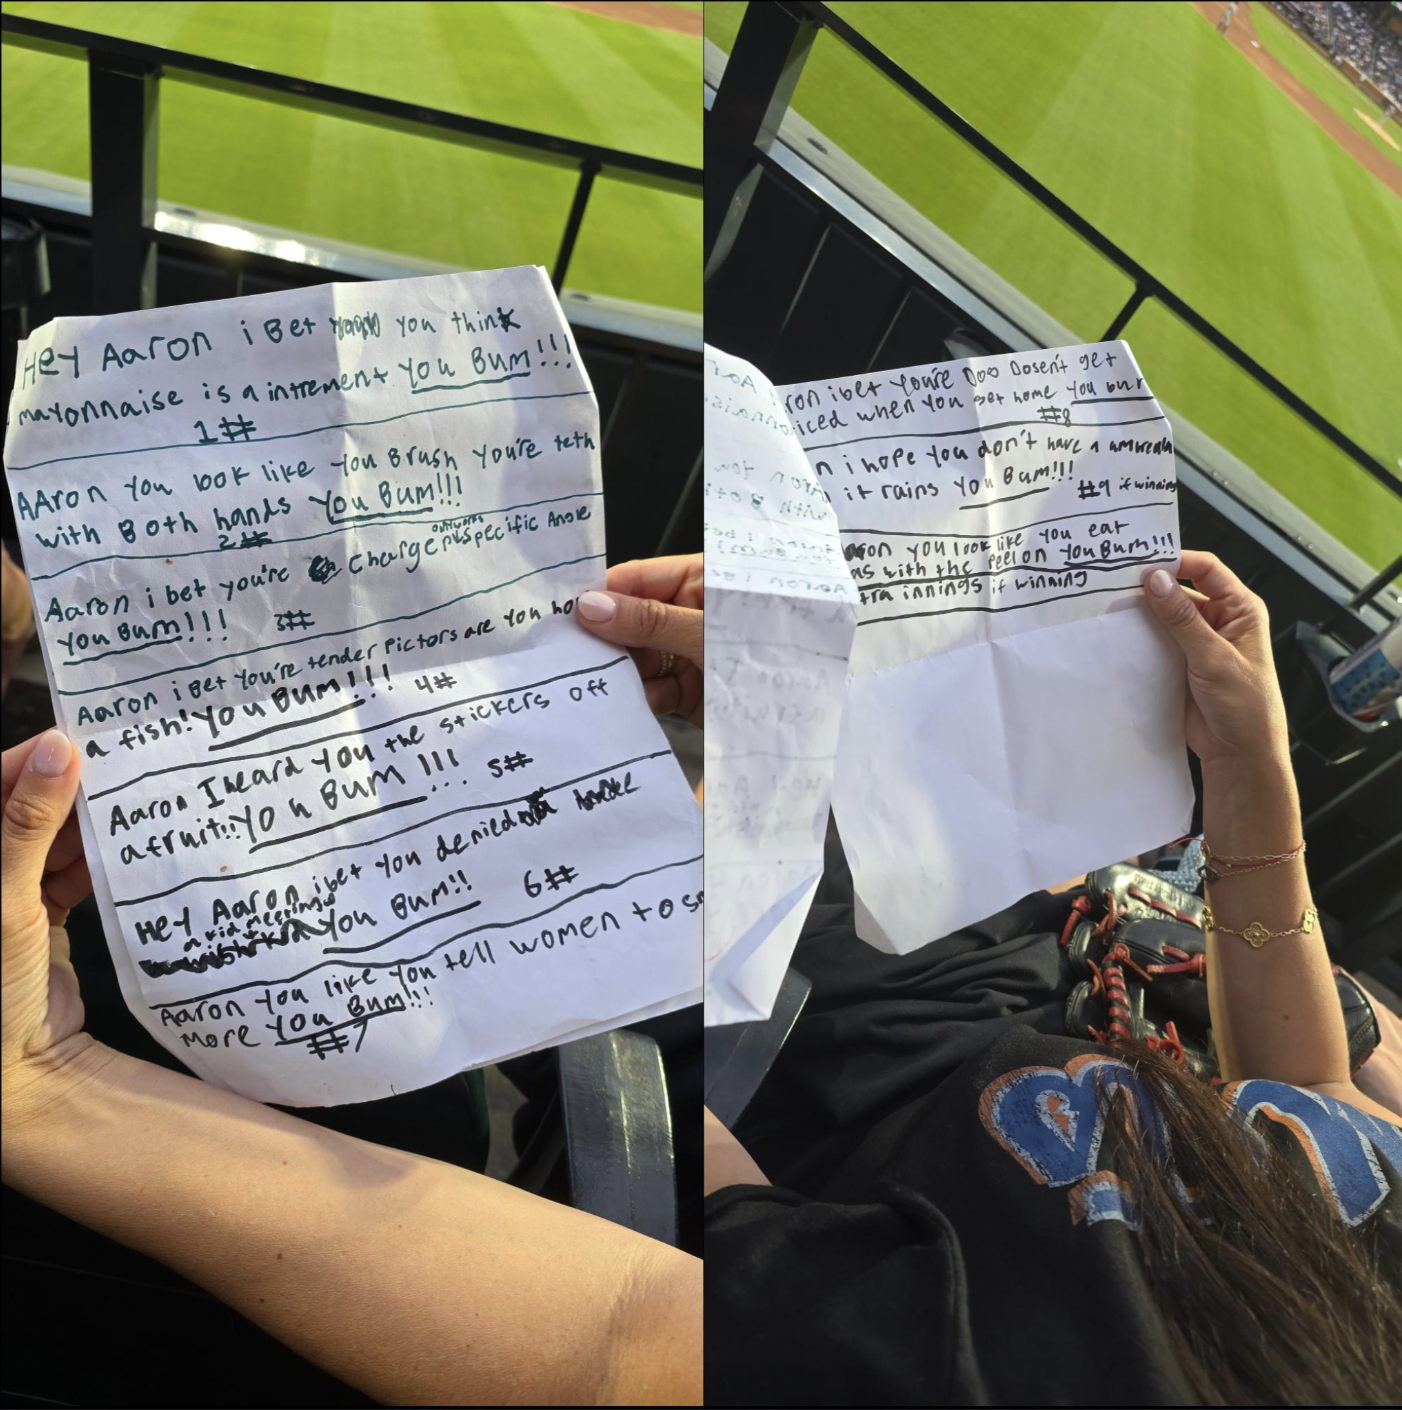 Hey Aaron i Bet you think
mayonnaise is a intrement You Bum!!!
1#
AAron You look like You Brush You're teth
with Both hands You Bum!!!
2#
Aaron i bet you're Charge only works
specific Angle
You Bum!!! 3#
Aaron i Bet You're tender Pictors are You
a fish! You Bum!!! 4#
Aaron I heard You the stickers off
a fruit!! You Bum!!! 5#
Hey Aaron i bet You denied
a kid meeting You Bum!! 6#
Aaron You like You tell women to
More You Bum!!!
#7
ibet You're Dog Dosen't get
when You get home You
#8
i hope You don't have a
it rains You Bum!!!
#9 if winning
You look like You eat
with the Peel on You Bum!!!
innings if winning